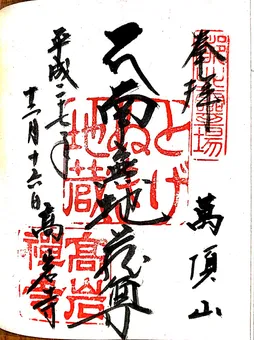 奉拝
萬頂山
南無地蔵尊
とげ
ぬき
地蔵
平成二十七年
十二月十六日
高岩寺
高岩
禅寺